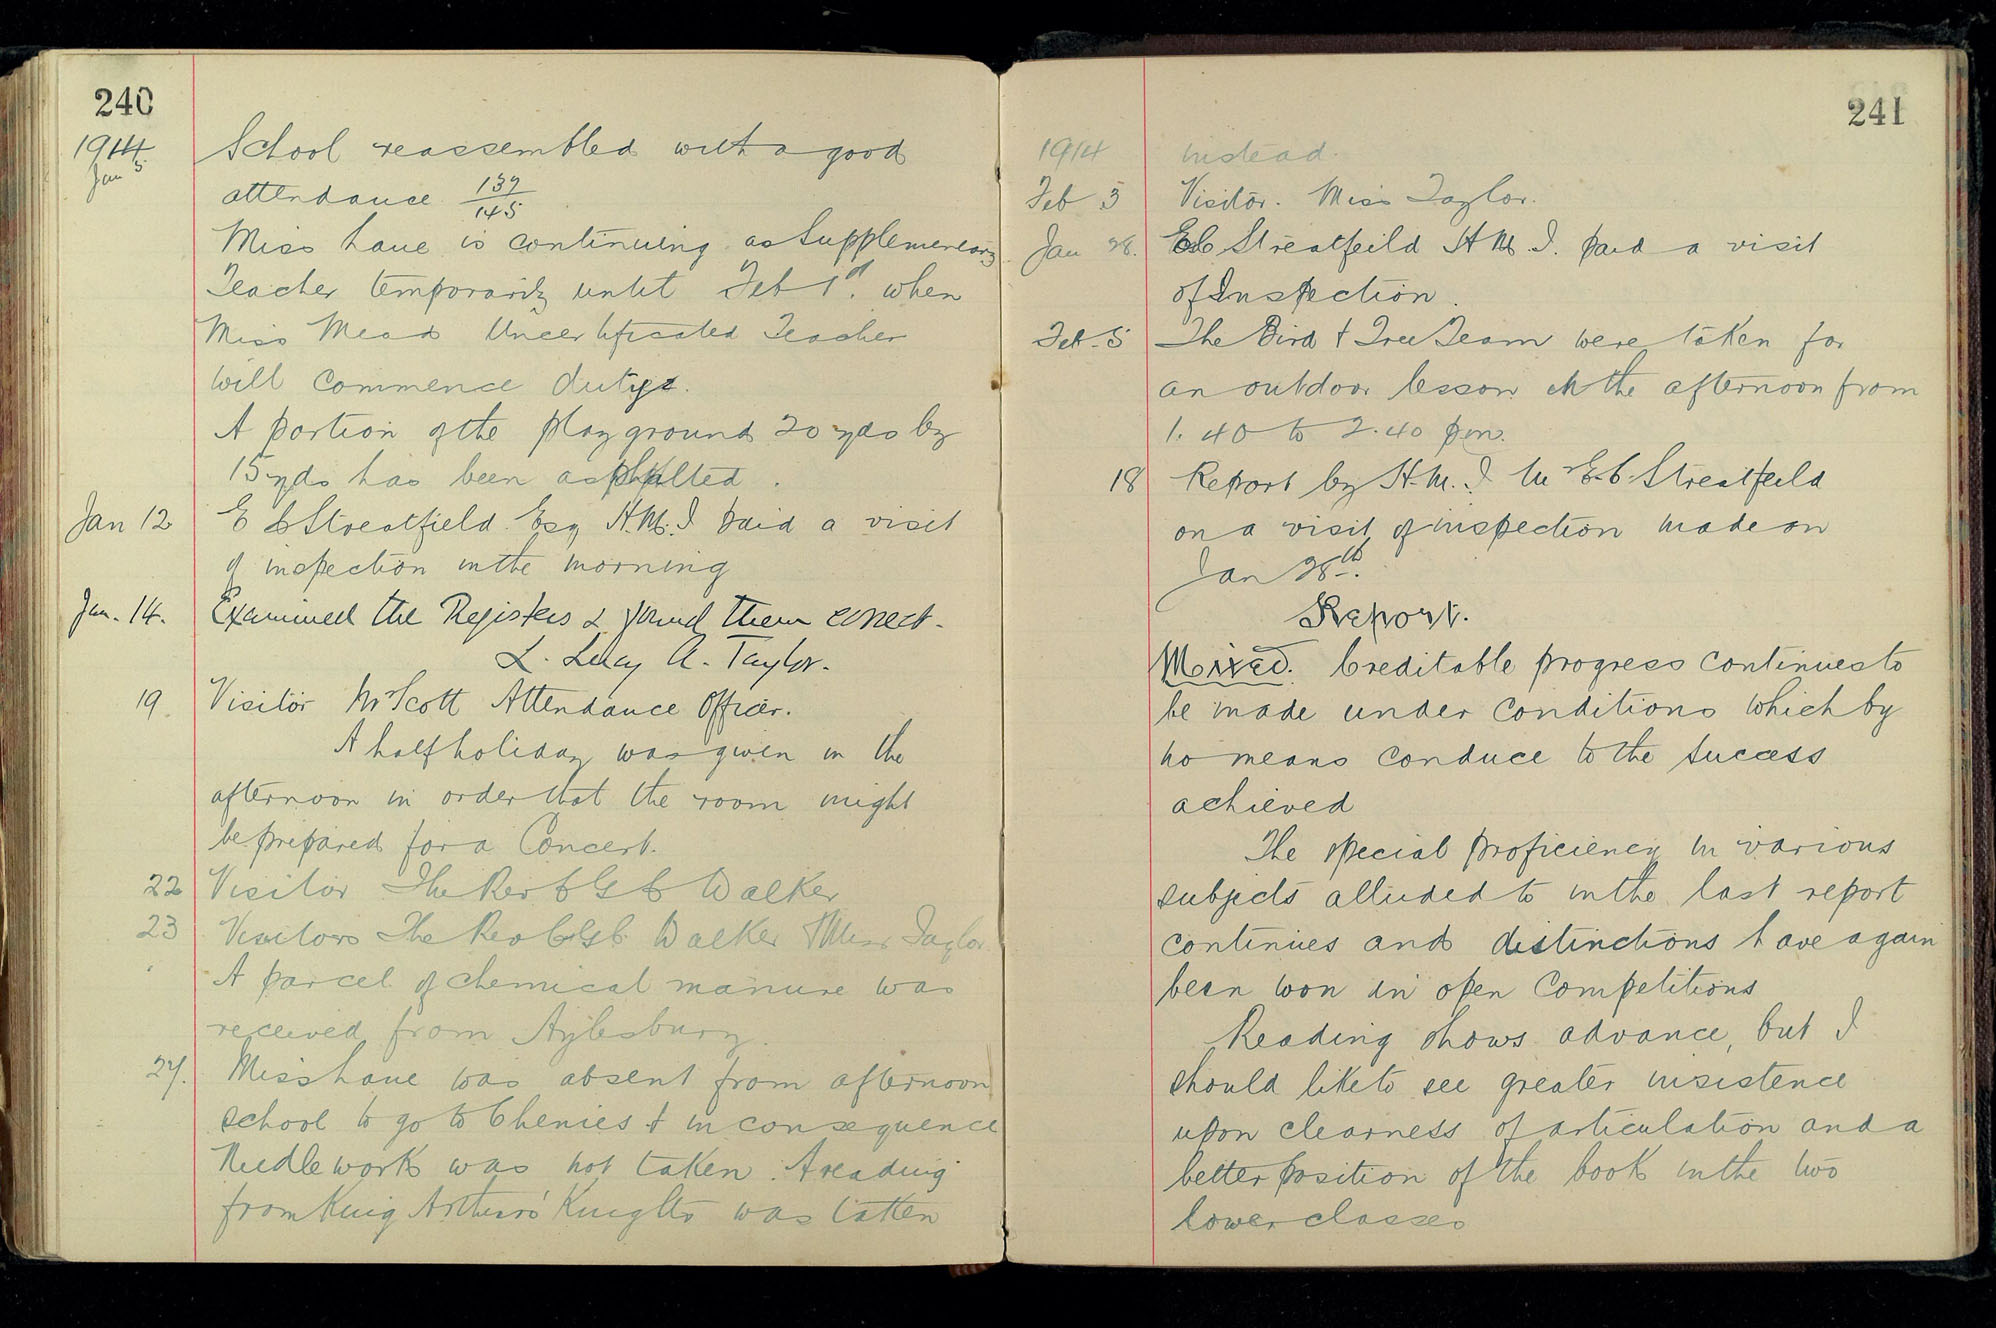 240
1914
Jan 5
School reassembled with a good
attendance 137/145
Miss Lane is continuing as Supplementary
Teacher temporarily until Feb 1st. when
Miss Mead Uncertificated Teacher
will commence dutys.
A portion of the playground 20 yds by
15 yds has been asphalted.
Jan 12 E C Streatfield Esq H.M.I paid a visit
of inspection in the morning
Jan. 14. Examined the Registers & found them correct.
L. Lucy A. Taylor.
19 Visitor Mr Scott Attendance Officer.
A half holiday was given in the
afternoon in order that the room might
be prepared for a Concert.
22 Visitor The Rev C G C Walker
23 Visitors The Rev C G C Walker & Miss Taylor
A parcel of chemical manure was
received from Aylesbury.
27. Miss Lane was absent from afternoon
school to go to Chenies & in consequence
Needlework was not taken. A reading
from King Arthurs' Knights was taken
241
1914 instead.
Feb 3 Visitor. Miss Taylor.
Jan 28. E C Streatfeild H.M.I. paid a visit
of Inspection.
Feb. 5 The Bird & Tree Team were taken for
an outdoor lesson in the afternoon from
1.40 to 2.40 p.m.
18 Report by H.M.I Mr E.C. Streatfeild
on a visit of inspection made on
Jan 28th.
Report.
Mixed. Creditable progress continues to
be made under conditions which by
no means conduce to the success
achieved
The special proficiency in various
subjects alluded to in the last report
continues and distinctions have again
been won in open Competitions
Reading shows advance, but I
should like to see greater insistence
upon clearness of articulation and a
better position of the book in the two
lower classes